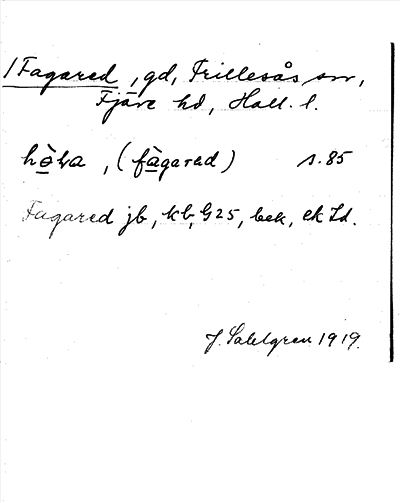 /Fagared, gd, Frillesås sn,
Fjäre hd, Hall. l.
hòva, (fàgarad) s. 85
Fagared jb, kb, G25, bek, ek Ld.
J. Sahlgren 1919.